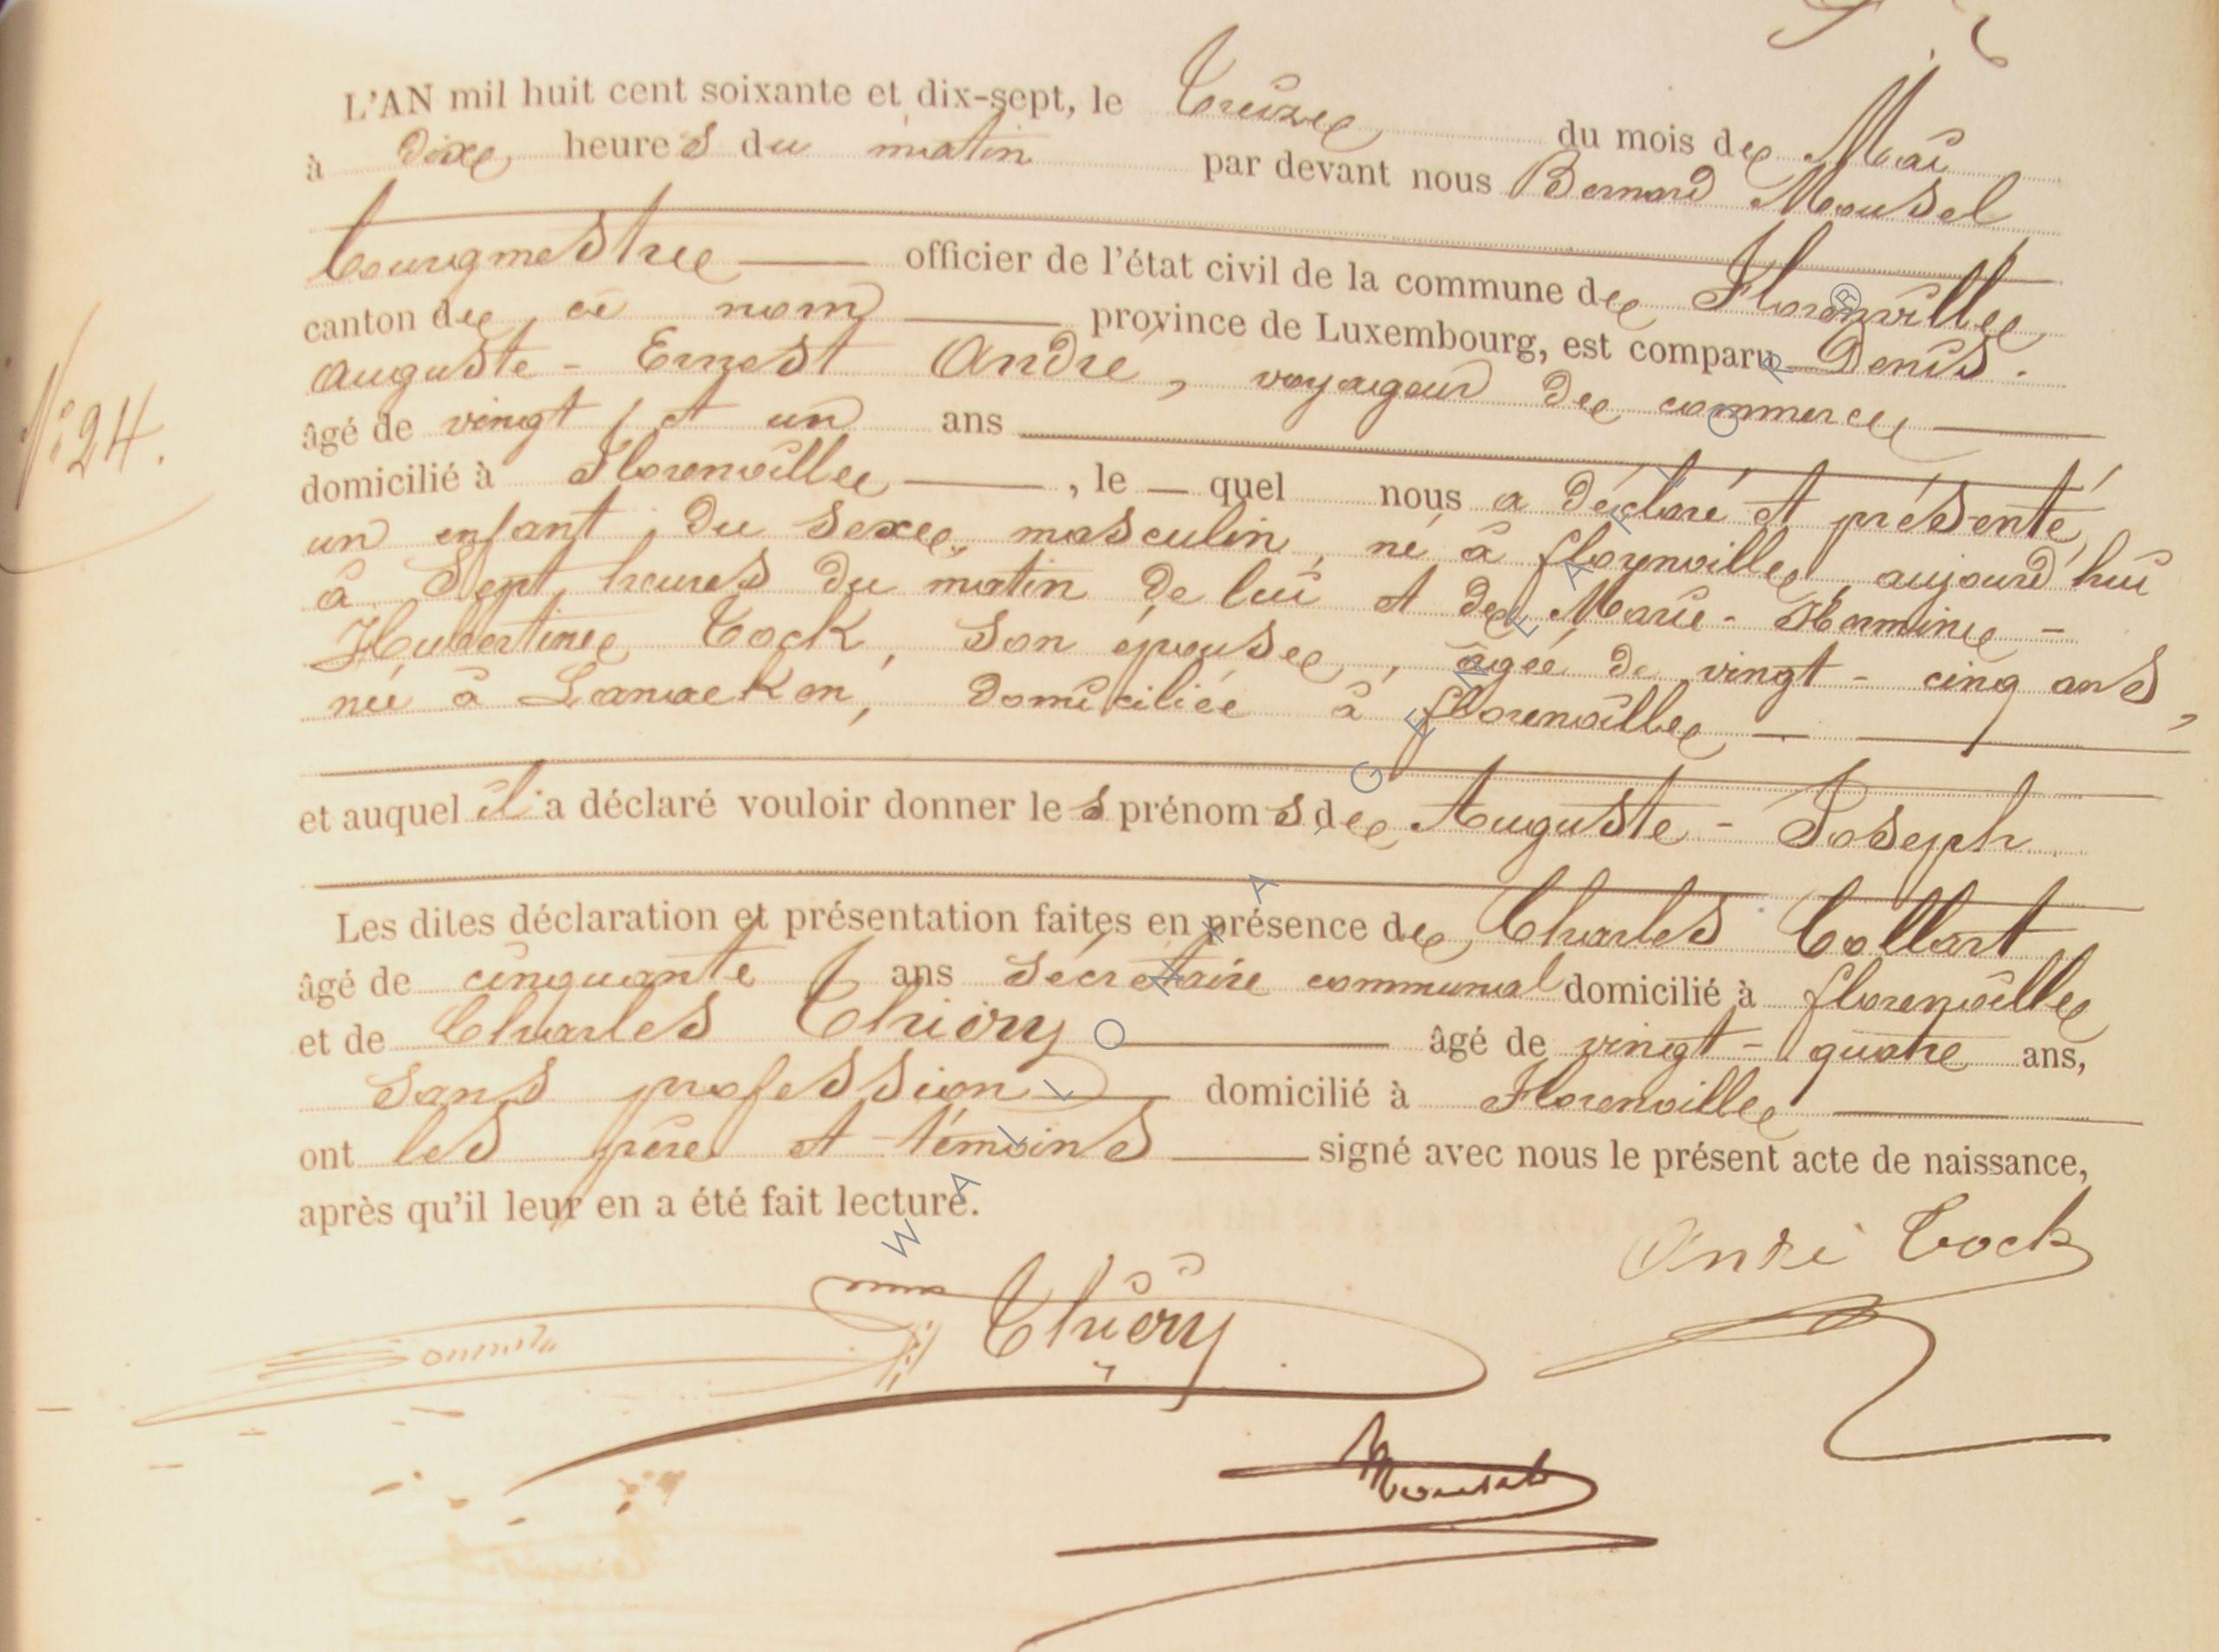 L'AN mil huit cent soixante et dix-sept, le treize du mois de Mai
à dix heures du matin par devant nous Bernard Mousel
bourgmestre officier de l'état civil de la commune de Florenville
canton de ce nom province de Luxembourg, est comparu Denis.
Auguste - Ernest André, voyageur de commerce
âgé de vingt et un ans
N° 24.
domicilié à Florenville, le quel nous a déclaré et présenté
un enfant du sexe masculin, né à florenville, aujourd'hui
à Sept heures du matin de lui et de Marie - Hermine -
Hubertine Cock, son épouse, âgée de vingt - cinq ans,
née à Lanaeken, domiciliée à florenville
et auquel il a déclaré vouloir donner les prénoms de Auguste - Joseph
Les dites déclaration et présentation faites en présence de Charles Collart
âgé de cinquante ans secrétaire communal domicilié à florenville
et de Charles Thiéry âgé de vingt - quatre ans,
sans profession domicilié à Florenville
ont les père et témoins signé avec nous le présent acte de naissance,
après qu'il leur en a été fait lecture.
André Cock
Thiéry
Mousel
WALLONIA GENEALOR R®